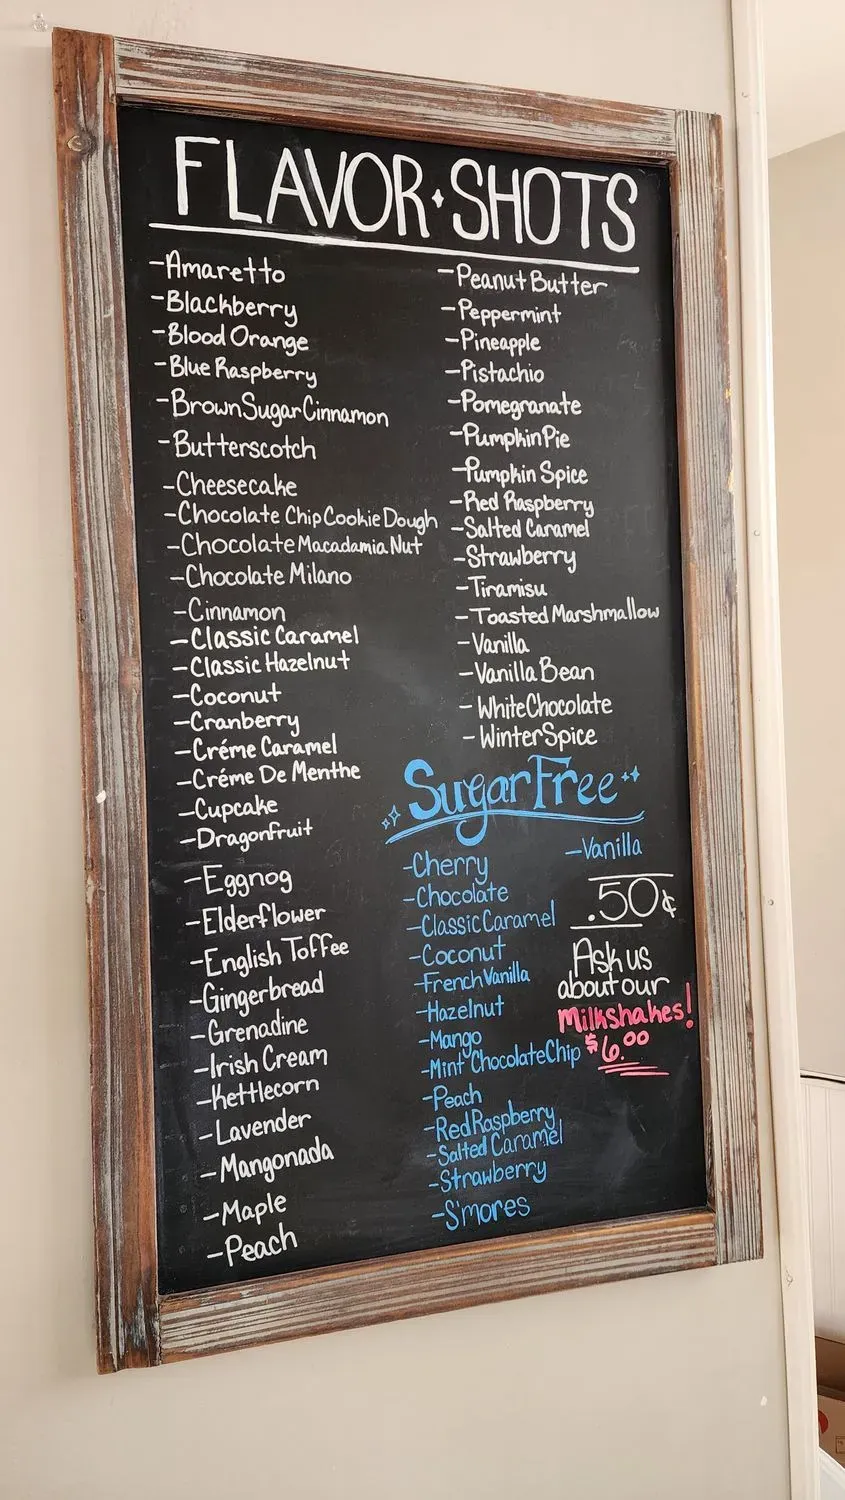 FLAVOR·SHOTS
-Amaretto
-Blackberry
-Blood Orange
-Blue Raspberry
-Brown Sugar Cinnamon
-Butterscotch
-Cheesecake
-Chocolate Chip Cookie Dough
-Chocolate Macadamia Nut
-Chocolate Milano
-Cinnamon
-Classic Caramel
-Classic Hazelnut
-Coconut
-Cranberry
-Créme Caramel
-Créme De Menthe
-Cupcake
-Dragonfruit
-Eggnog
-Elderflower
-English Toffee
-Gingerbread
-Grenadine
-Irish Cream
-Kettlecorn
-Lavender
-Mangonada
-Maple
-Peach
-Peanut Butter
-Peppermint
-Pineapple
-Pistachio
-Pomegranate
-Pumpkin Pie
-Pumpkin Spice
-Red Raspberry
-Salted Caramel
-Strawberry
-Tiramisu
-Toasted Marshmallow
-Vanilla
-Vanilla Bean
-White Chocolate
-Winter Spice
Sugar Free
-Cherry
-Chocolate
-Classic Caramel
-Coconut
-French Vanilla
-Hazelnut
-Mango
-Mint Chocolate Chip
-Peach
-Red Raspberry
-Salted Caramel
-Strawberry
-S'mores
-Vanilla
.50¢
Ask us
about our
Milkshakes!
$6.00